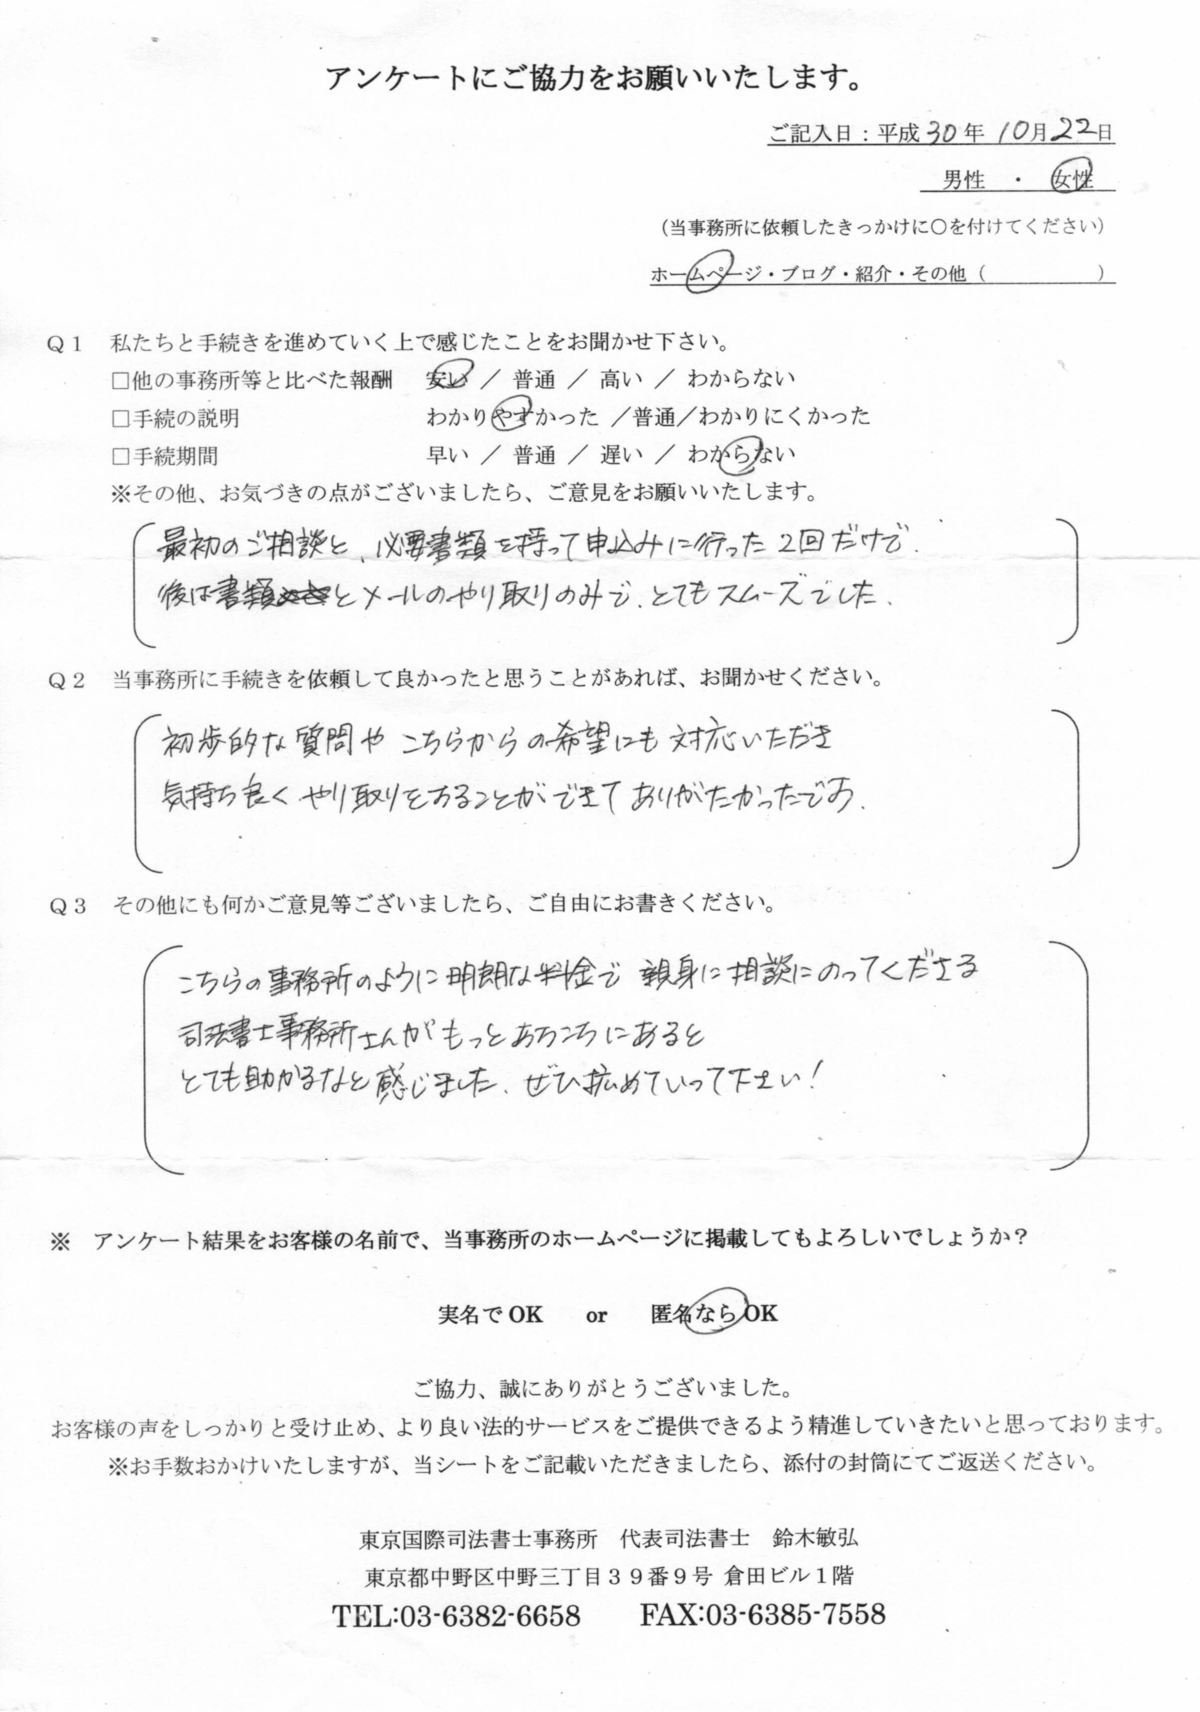 アンケートにご協力をお願いいたします。
ご記入日：平成30年 10月22日
男性 ・ 女性
（当事務所に依頼したきっかけに○を付けてください）
ホームページ・ブログ・紹介・その他（　　　　　）
Ｑ１ 私たちと手続きを進めていく上で感じたことをお聞かせ下さい。
□他の事務所等と比べた報酬 安い ／ 普通 ／ 高い ／ わからない
□手続の説明 わかりやすかった ／普通／わかりにくかった
□手続期間 早い ／ 普通 ／ 遅い ／ わからない
※その他、お気づきの点がございましたら、ご意見をお願いいたします。
最初のご相談と、必要書類を持って申込みに行った2回だけで、
後は書類とメールのやり取りのみで、とてもスムーズでした、
Ｑ２ 当事務所に手続きを依頼して良かったと思うことがあれば、お聞かせください。
初歩的な質問や こちらからの希望にも 対応いただき
気持ち良く やり取りをすることができて ありがたかったです、
Ｑ３ その他にも何かご意見等ございましたら、ご自由にお書きください。
こちらの事務所のように明朗な料金で 親身に相談にのってくださる
司法書士事務所さんがもっとあちこちにあると
とても助かるなと感じました、ぜひ拡めていって下さい！
※ アンケート結果をお客様の名前で、当事務所のホームページに掲載してもよろしいでしょうか？
実名でOK or 匿名ならOK
ご協力、誠にありがとうございました。
お客様の声をしっかりと受け止め、より良い法的サービスをご提供できるよう精進していきたいと思っております。
※お手数おかけいたしますが、当シートをご記載いただきましたら、添付の封筒にてご返送ください。
東京国際司法書士事務所　代表司法書士　鈴木敏弘
東京都中野区中野三丁目３９番９号 倉田ビル１階
TEL:03-6382-6658 FAX:03-6385-7558